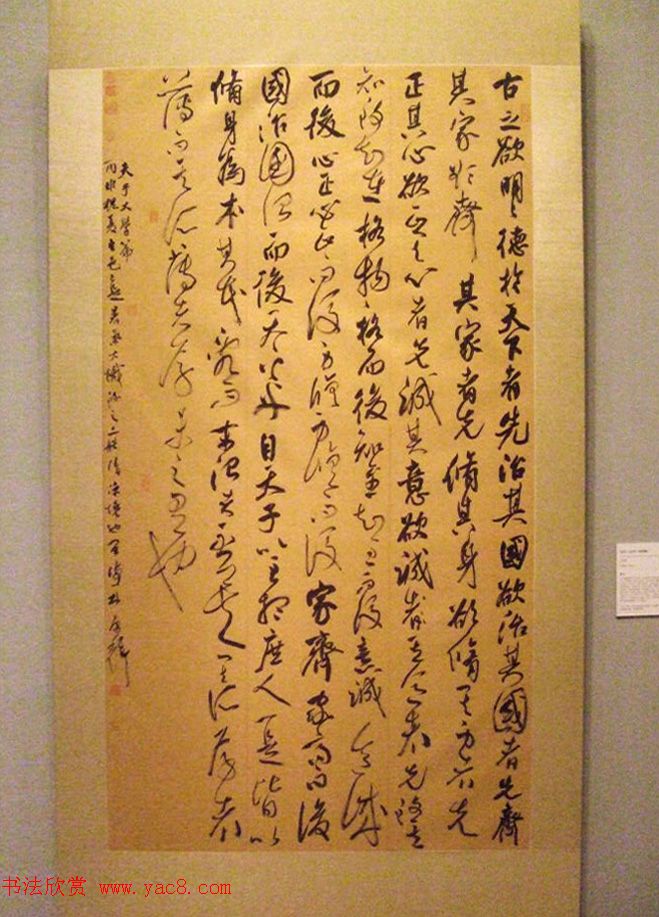 古之欲明明德於天下者先治其國欲治其國者先齊
其家欲齊其家者先脩其身欲脩其身者先
正其心欲正其心者先誠其意欲誠其意者先致其
知致知在格物物格而後知至知至而後意誠意誠
而後心正心正而後身脩身脩而後家齊家齊而後
國治國治而後天下平自天子以至於庶人壹是皆以
脩身為本其本亂而末治者否矣其所厚者
薄而其所薄者厚未之有也
夫子大學篇
書法欣賞 www.yac8.com